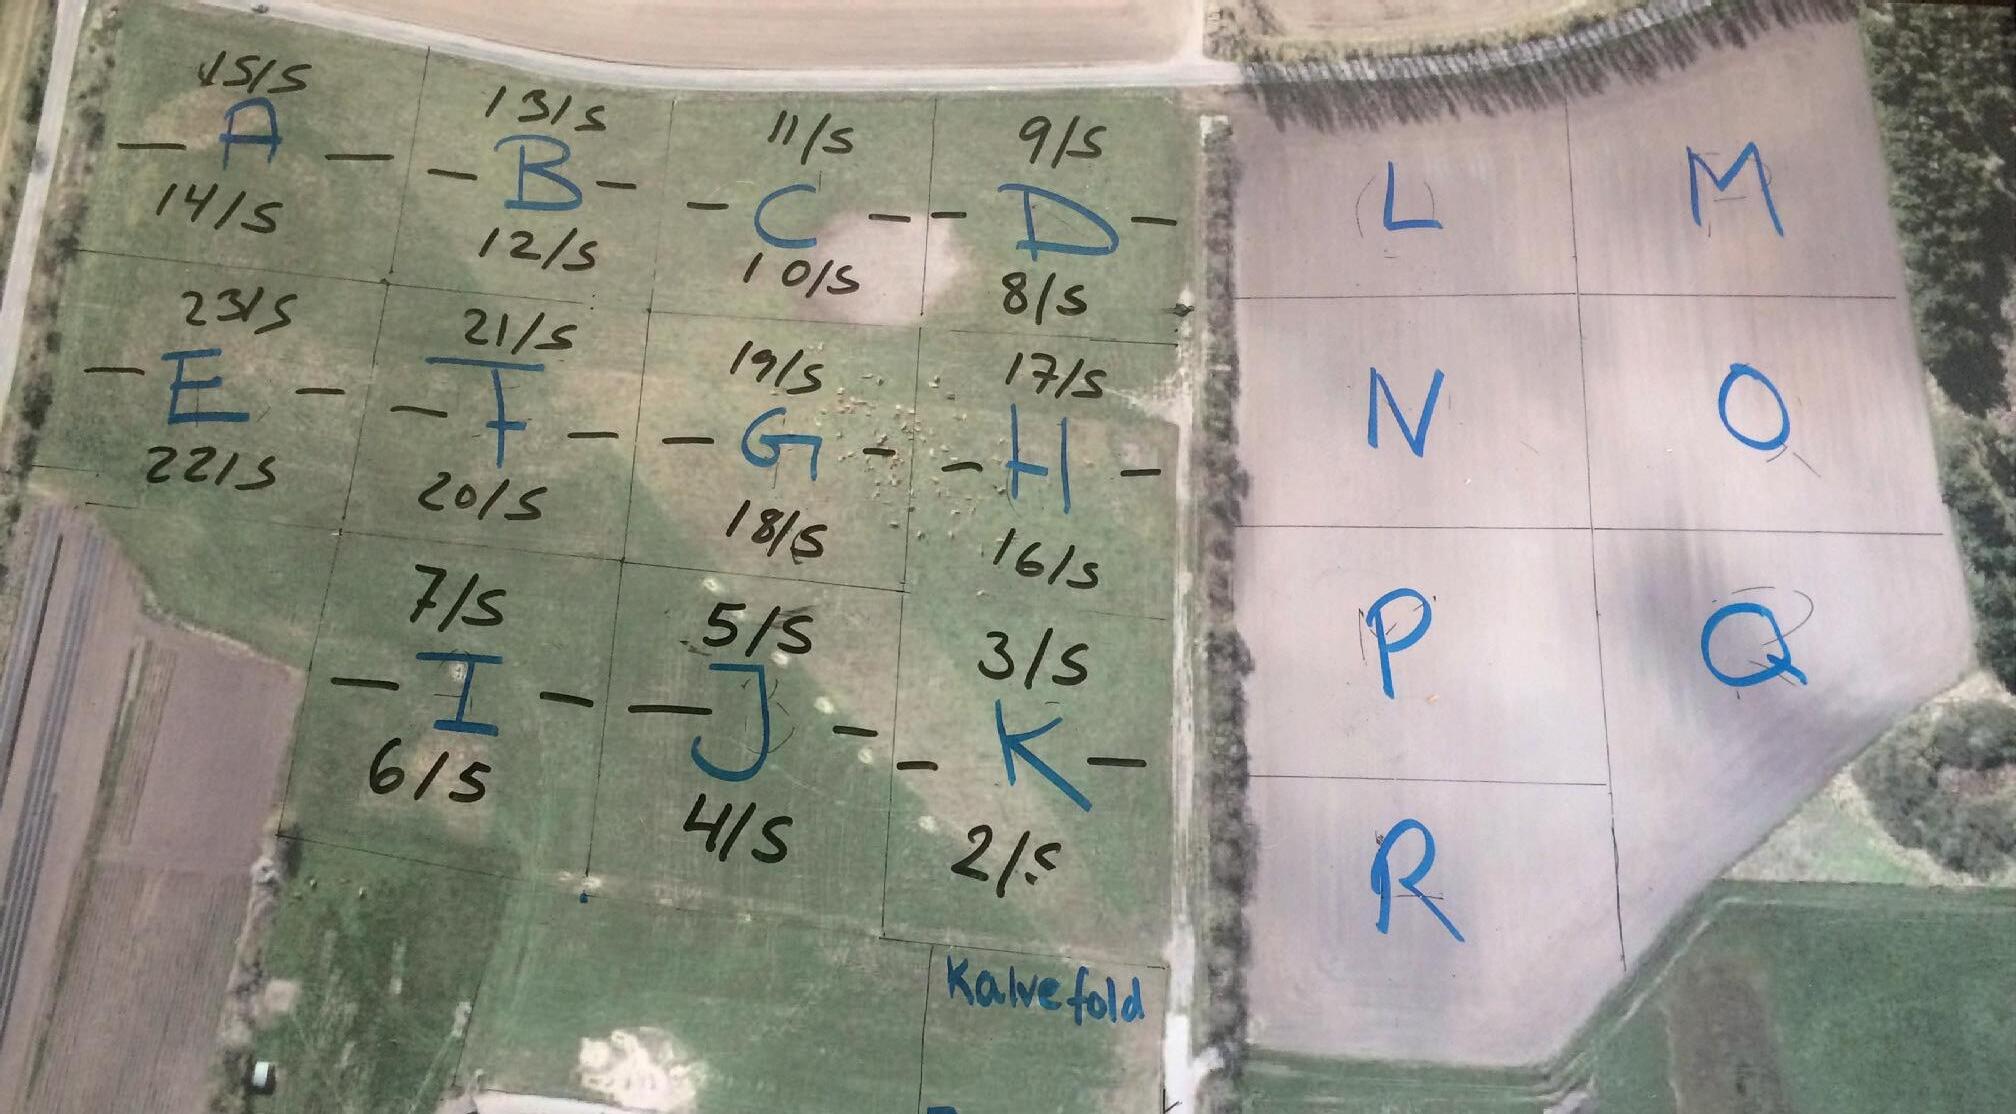 15/5
A
14/5
13/5
B
12/5
11/5
C
10/5
9/5
D
8/5
L
M
23/5
E
22/5
21/5
F
20/5
19/5
G
18/5
17/5
H
16/5
N
O
7/5
I
6/5
5/5
J
4/5
3/5
K
2/5
P
Q
R
Kalvefold